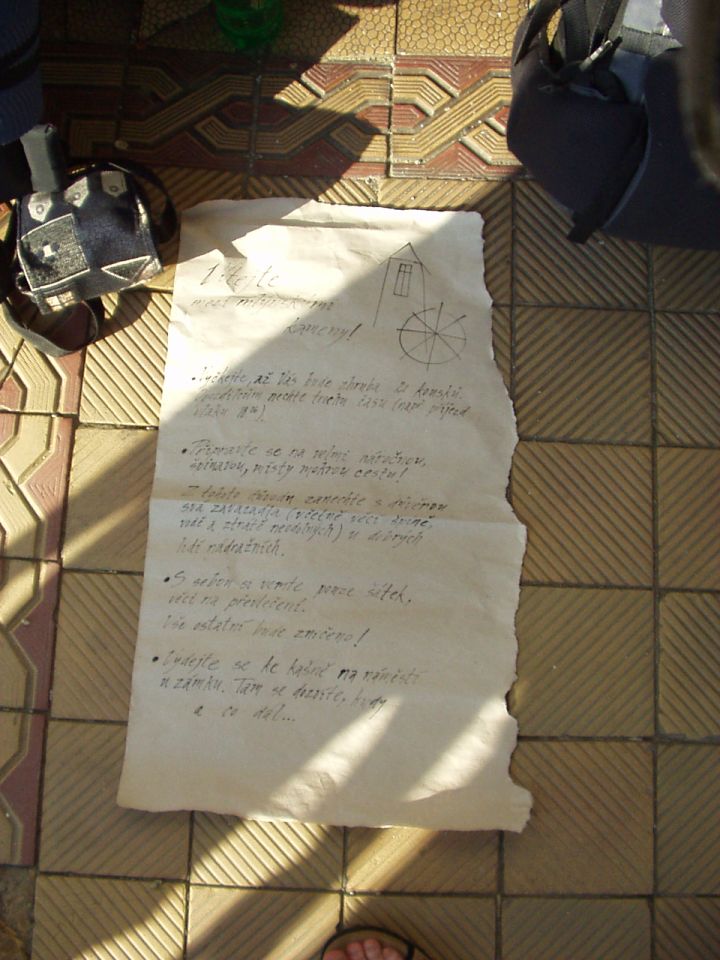 Vítejte
mezi mlýnskými
kameny!
• Vyčkejte, až Vás bude zhruba 21 kousků.
Opozdilcům nechte trochu času (např. příjezd
vlaku 18
• Připravte se na velmi náročnou,
špinavou, místy mokrou cestu!
Z tohoto důvodu zanechte s důvěrou
svá zavazadla (včetně věcí špíně,
vodě a ztrátě neodolných) u dobrých
lidí nádražních.
• S sebou si vemte pouze šátek,
věci na převlečení.
Vše ostatní bude zničeno!
• Vydejte se ke kašně na náměstí
u zámku. Tam se dozvíte, kudy
a co dál...